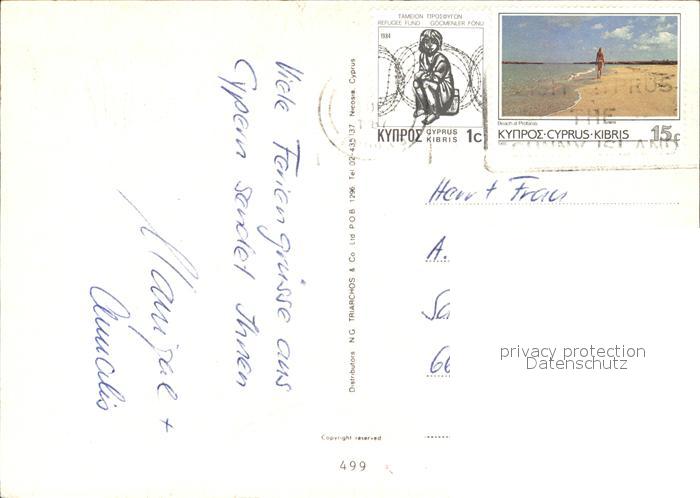 ΤΑΜΕΙΟΝ ΠΡΟΣΦΥΓΩΝ
REFUGEE FUND GÖÇMENLER FONU
1984
ΚΥΠΡΟΣ CYPRUS KIBRIS 1c
Beach at Protaras
ΚΥΠΡΟΣ·CYPRUS·KIBRIS 15c
THE
SUNNY ISLAND
Viele Feriengrüsse aus
Cypern sendet Ihnen
+
Annalis
Distributors N.G. TRIARCHOS & Co. Ltd P.O.B. 1296 Tel. 02-435137 Nicosia, Cyprus
Herr + Frau
A.
Sa
66
privacy protection
Datenschutz
Copyright reserved
499